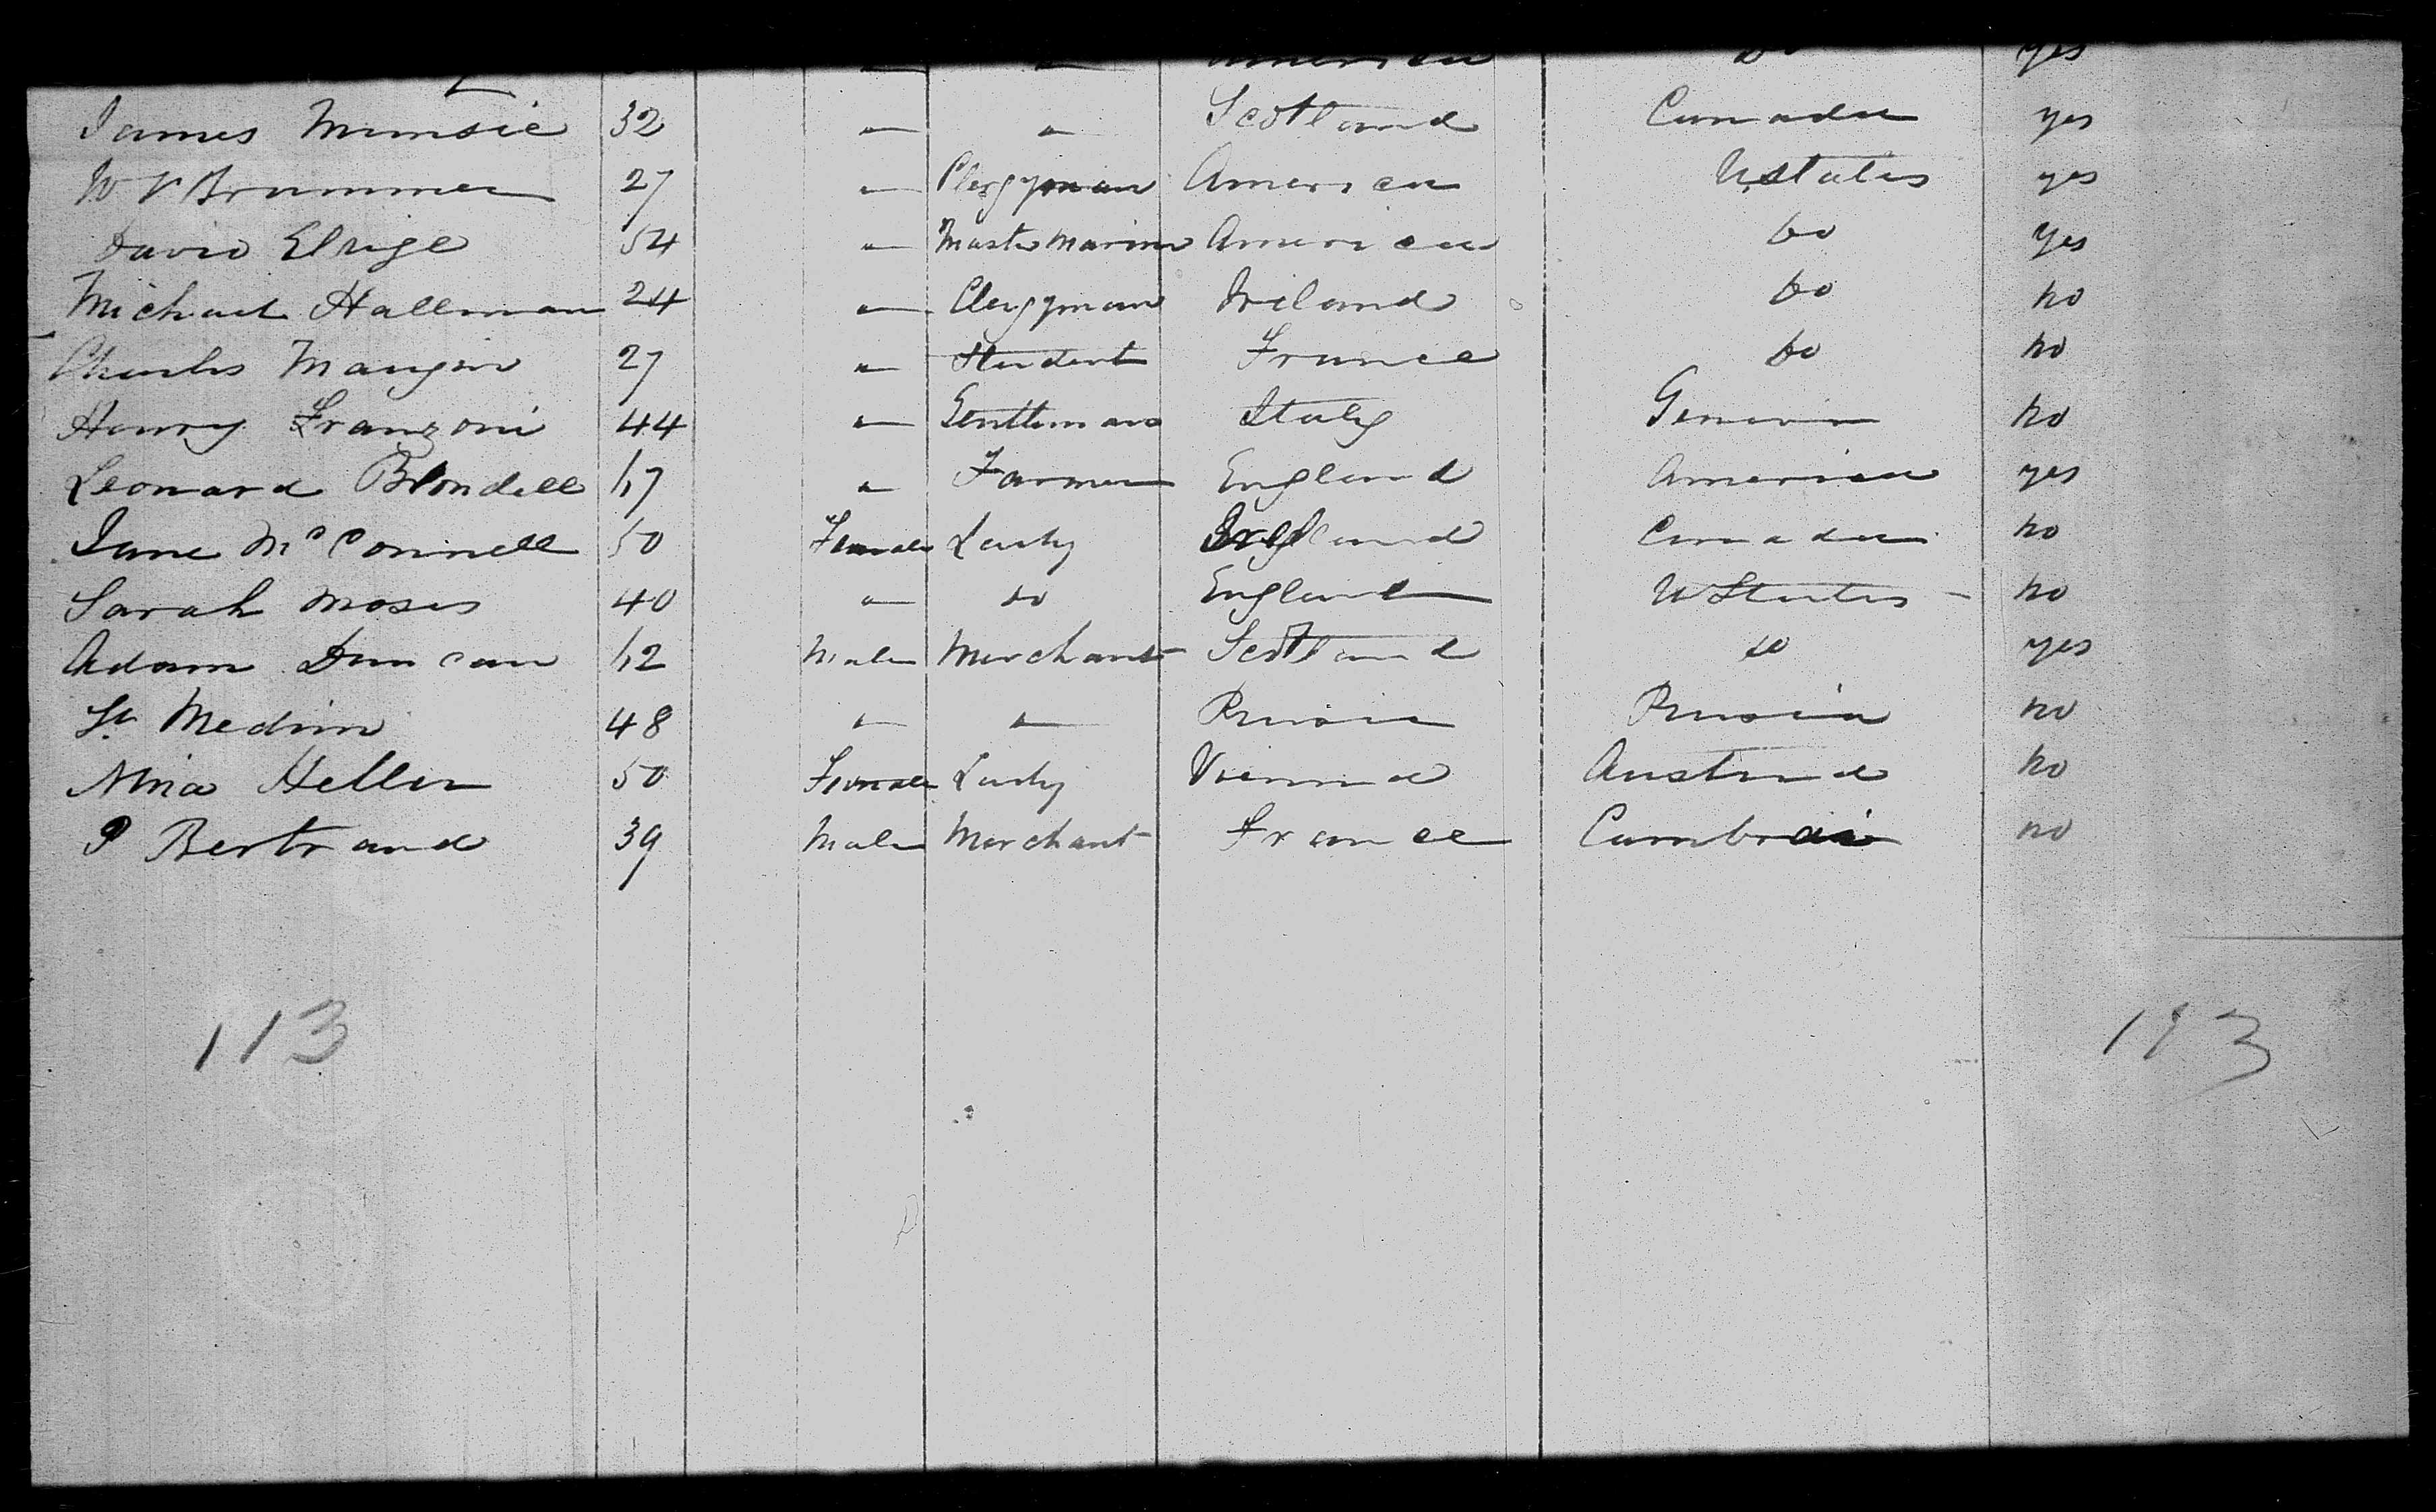 America do yes
James Munsie 32 " " Scotland Canada yes
W V Brummer 27 " Clergyman America UStates yes
David Elrige 54 " Master Marine America Do yes
Michael Hallman 24 " Clergyman Ireland Do no
Charles Maugin 27 " Student France Do no
Henry Franzoni 44 " Gentleman Italy no
Leonard Blondell 67 " Farmer England America yes
Jane McConnell 50 Female Lady Ireland Canada no
Sarah Moses 40 " do England UStates no
Adam Duncan 62 Male Merchant Scotland do yes
48 " " Prussia Prussia no
Nina Heller 50 Female Lady Vienna Austria no
P Bertrand 39 Male Merchant France Cambrai no
113 193